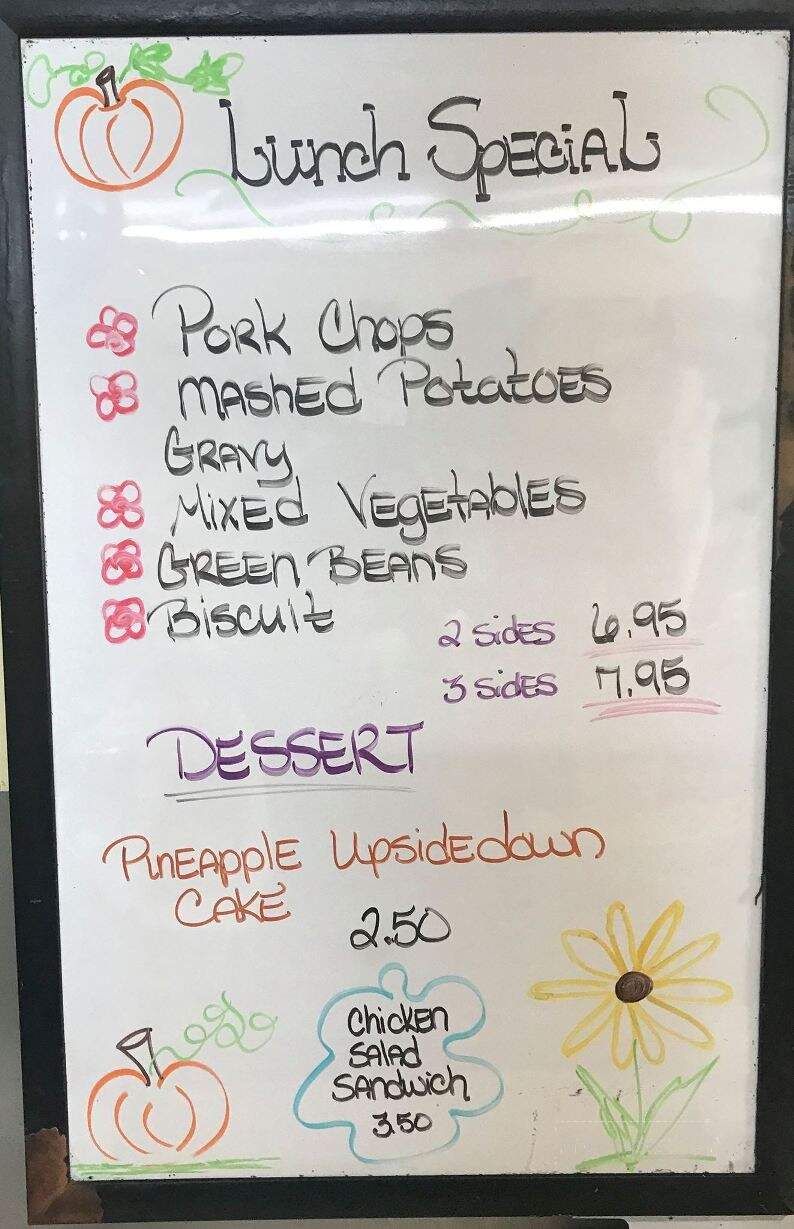 Lunch Special
Pork Chops
Mashed Potatoes
Gravy
Mixed Vegetables
Green Beans
Biscuit
2 sides 6.95
3 sides 7.95
DESSERT
Pineapple Upsidedown
Cake
2.50
Chicken
Salad
Sandwich
3.50